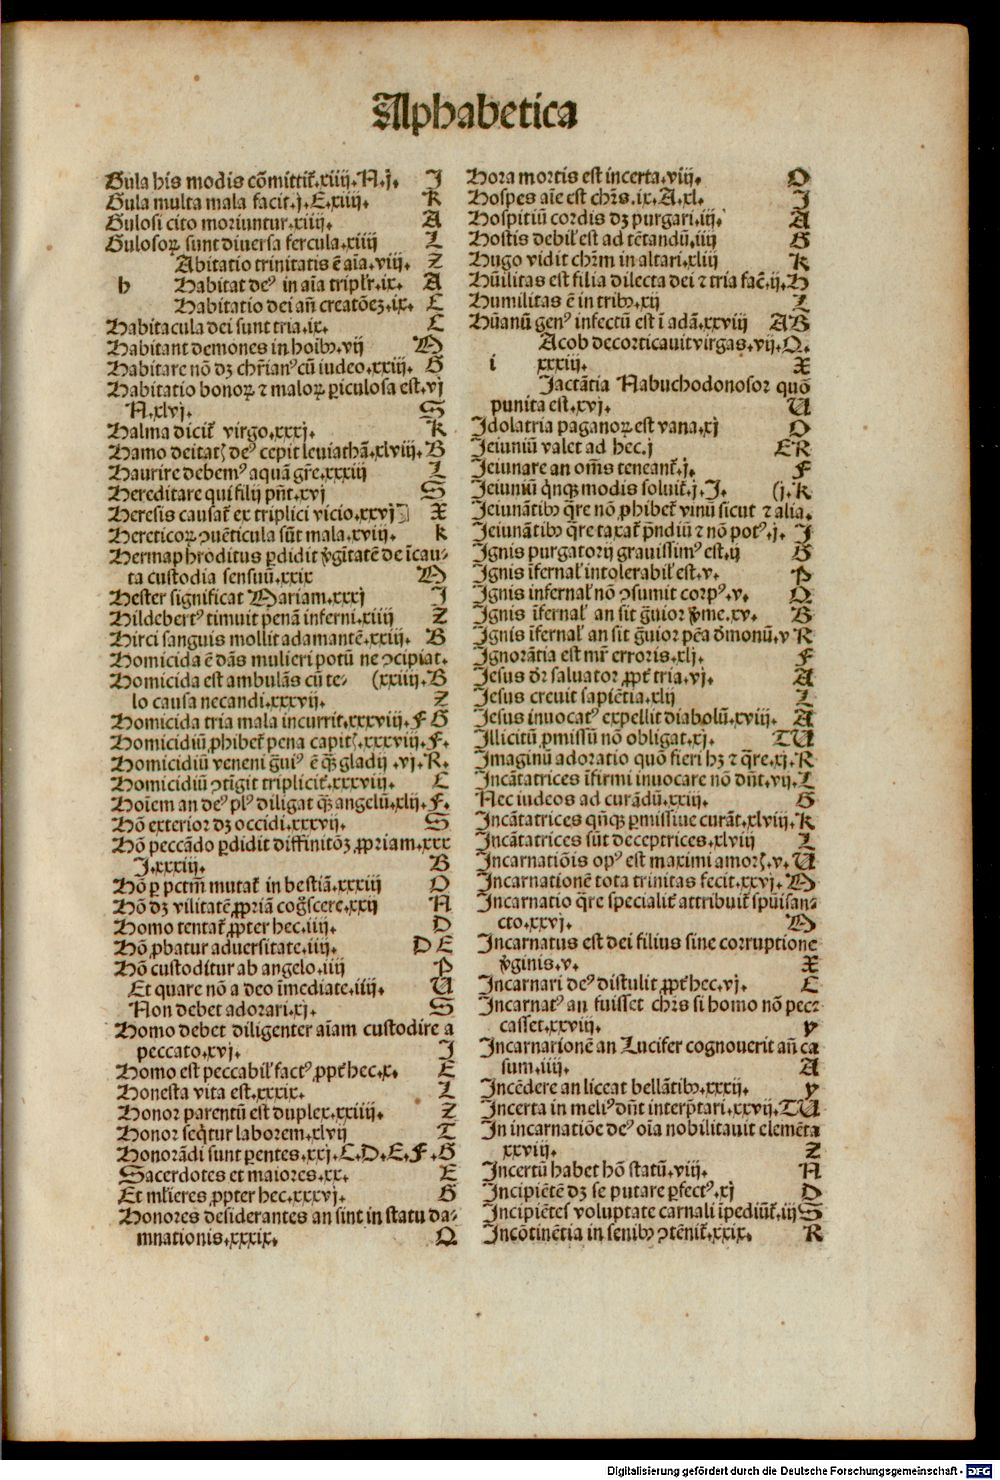 Alphabetica
Gula his modis cõmittit᷑.xiiij.N.j. I
Gula multa mala facit.j.E.xiiij. K
Gulosi cito moriuntur.xiiij. A
Gulosoꝝ sunt diuersa fercula.xiiij L
Abitatio trinitatis ẽ aĩa.viij. Z
h Habitat deꝰ in aĩa triplr̃.ix. A
Habitatio dei añ creatõeȝ.ix. C
Habitacula dei sunt tria.ix. C
Habitant demones in hoĩbꝰ.vij M
Habitare nõ dȝ chr̃ianꝰ cũ iudeo.xxiij. G
Habitatio bonoꝝ ⁊ maloꝝ ꝑiculosa est.vj
N.xlvj. S
Halma dicit᷑ virgo.xxxj. K
Hamo deitatꝭ deꝰ cepit leuiathã.xlviij. B
Haurire debemꝰ aquã gr̃e.xxxiij L
Hereditare qui filij pñt.xvj S
Heresis causat᷑ ex triplici vicio.xxvj X
Hereticoꝝ ꝯuẽticula sũt mala.xviij. k
Hermaphroditus ꝑdidit v̾gĩtatẽ de ĩcau-
ta custodia sensuũ.xxix M
Hester significat Mariam.xxxj I
Hildebertꝰ timuit penã inferni.xiiij Z
Hirci sanguis mollit adamantẽ.xxiij. B
Homicida ẽ dãs mulieri potũ ne ꝯcipiat.
Homicida est ambulãs cũ te- (xxiiij.B
lo causa necandi.xxxvij. Z
Homicida tria mala incurrit.xxxviij. F G
Homicidiũ ꝓhibet᷑ pena capitꝭ.xxxviij.F.
Homicidiũ veneni g̃uiꝰ ẽ qᷓȝ gladij .vj.R.
Homicidiũ ꝯtĩgit triplicit᷑.xxxviij. C
Hoĩem an deꝰ plꝰ diligat qᷓȝ angelũ.xlij.F.
Hõ exterior dȝ occidi.xxxvij. S
Hõ peccãdo ꝑdidit diffinitõȝ ꝓpriam.xxx
I.xxxiij. B
Hõ ꝑ pctm̃ mutat᷑ in bestiã.xxxiij O
Hõ dȝ vilitatẽ ꝓpriã cog̃scere.xxij N
Homo tentat᷑ ꝓpter hec.iiij. D
Hõ ꝓbatur aduersitate.iiij. D E
Hõ custoditur ab angelo.iiij P
Et quare nõ a deo ĩmediate.iiij. U
Non debet adorari.xj. S
Homo debet diligenter aĩam custodire a
peccato.xvj. I
Homo est peccabilꝭ factꝰ ꝓpt᷑ hec.x. E
Honesta vita est.xxxix. L
Honor parentũ est duplex.xxiiij. Z
Honor seq̃tur laborem.xlvij T
Honorãdi sunt ꝑentes.xxj.C.D.E.F.G
Sacerdotes et maiores.xx. E
Et ml̃ieres ꝓpter hec.xxxvj. G
Honores desiderantes an sint in statu da-
mnationis.xxxix. Q
Hora mortis est incerta.viij. O
Hospes aĩe est chr̃s.ix.A.xl. I
Hospitiũ cordis dȝ purgari.iij. A
Hostis debilꝭ est ad tẽtandũ.iiij G
Hugo vidit chr̃m in altari.xliij K
Hũilitas est filia dilecta dei ⁊ tria fac̃.ij.H
Humilitas ẽ in tribꝰ.xij L
Hũanũ genꝰ infectũ est ĩ adã.xxviij A B
Acob decorticauit virgas.vij.Q.
i xxxiij. X
Jactãtia Nabuchodonosor quõ
punita est.xvj. U
Idolatria paganoꝝ est vana.xj O
Jeiuniũ valet ad hec.j E R
Jeiunare an om̃s teneant᷑.j. F
Jeiuniũ q̃nqꝫ modis soluit᷑.j.I. (j.K
Jeiunãtibꝰ q̃re nõ ꝓhibet᷑ vinũ sicut ⁊ alia.
Jeiunãtibꝰ q̃re taxat᷑ p̃ndiũ ⁊ nõ potꝰ.j. I
Ignis purgatorij grauissimꝰ est.ij G
Ignis ĩfernalꝭ intolerabilꝭ est.v. P
Ignis infernalꝭ nõ ꝯsumit corpꝰ.v. Q
Ignis ĩfernalꝭ an sit g̃uior v̾me.xv. B
Ignis ĩfernalꝭ an sit g̃uior pẽa dꝰmonũ.v R
Ignorãtia est mr̃ erroris.xlj. F
Jesus dr̃ saluator ꝓpt᷑ tria.vj. A
Jesus creuit sapiẽtia.xlij L
Jesus inuocatꝰ expellit diabolũ.xviij. A
Illicitũ ꝓmissũ nõ obligat.xj. T U
Imaginũ adoratio quõ fieri hȝ ⁊ q̃re.xj.R
Incãtatrices ĩfirmi inuocare nõ dñt.vij.L
Nec iudeos ad curãdũ.xxiij. G
Incãtatrices qñqꝫ ꝑmissiue curãt.xlviij.K
Incãtatrices sũt deceptrices.xlviij L
Incarnatiõis opꝰ est maximi amorꝭ.v.U
Incarnationẽ tota trinitas fecit.xxvj.M
Incarnatio q̃re specialit᷑ attribuit᷑ spũisan-
cto.xxvj. M
Incarnatus est dei filius sine corruptione
v̾ginis.v. X
Incarnari deꝰ distulit ꝓpt᷑ hec.vj. C
Incarnatꝰ an fuisset chr̃s si homo nõ pec-
casset.xxviij. y
Incarnationẽ an Lucifer cognouerit añ ca
sum.iiij. A
Incẽdere an liceat bellãtibꝰ.xxxij. y
Incerta in meliꝰ dñt interp̃tari.xxvij.T U
In incarnatiõe deꝰ oĩa nobilitauit elemẽta
xxviij. Z
Incertũ habet hõ statũ.viij. N
Incipiẽtẽ dȝ se putare ꝑfectꝰ.xj D
Incipiẽtes voluptate carnali ĩpediũt᷑.iij S
Incõtinẽtia in senibꝰ ꝯtẽnit᷑.xxix. R
Digitalisierung gefördert durch die Deutsche Forschungsgemeinschaft - DFG